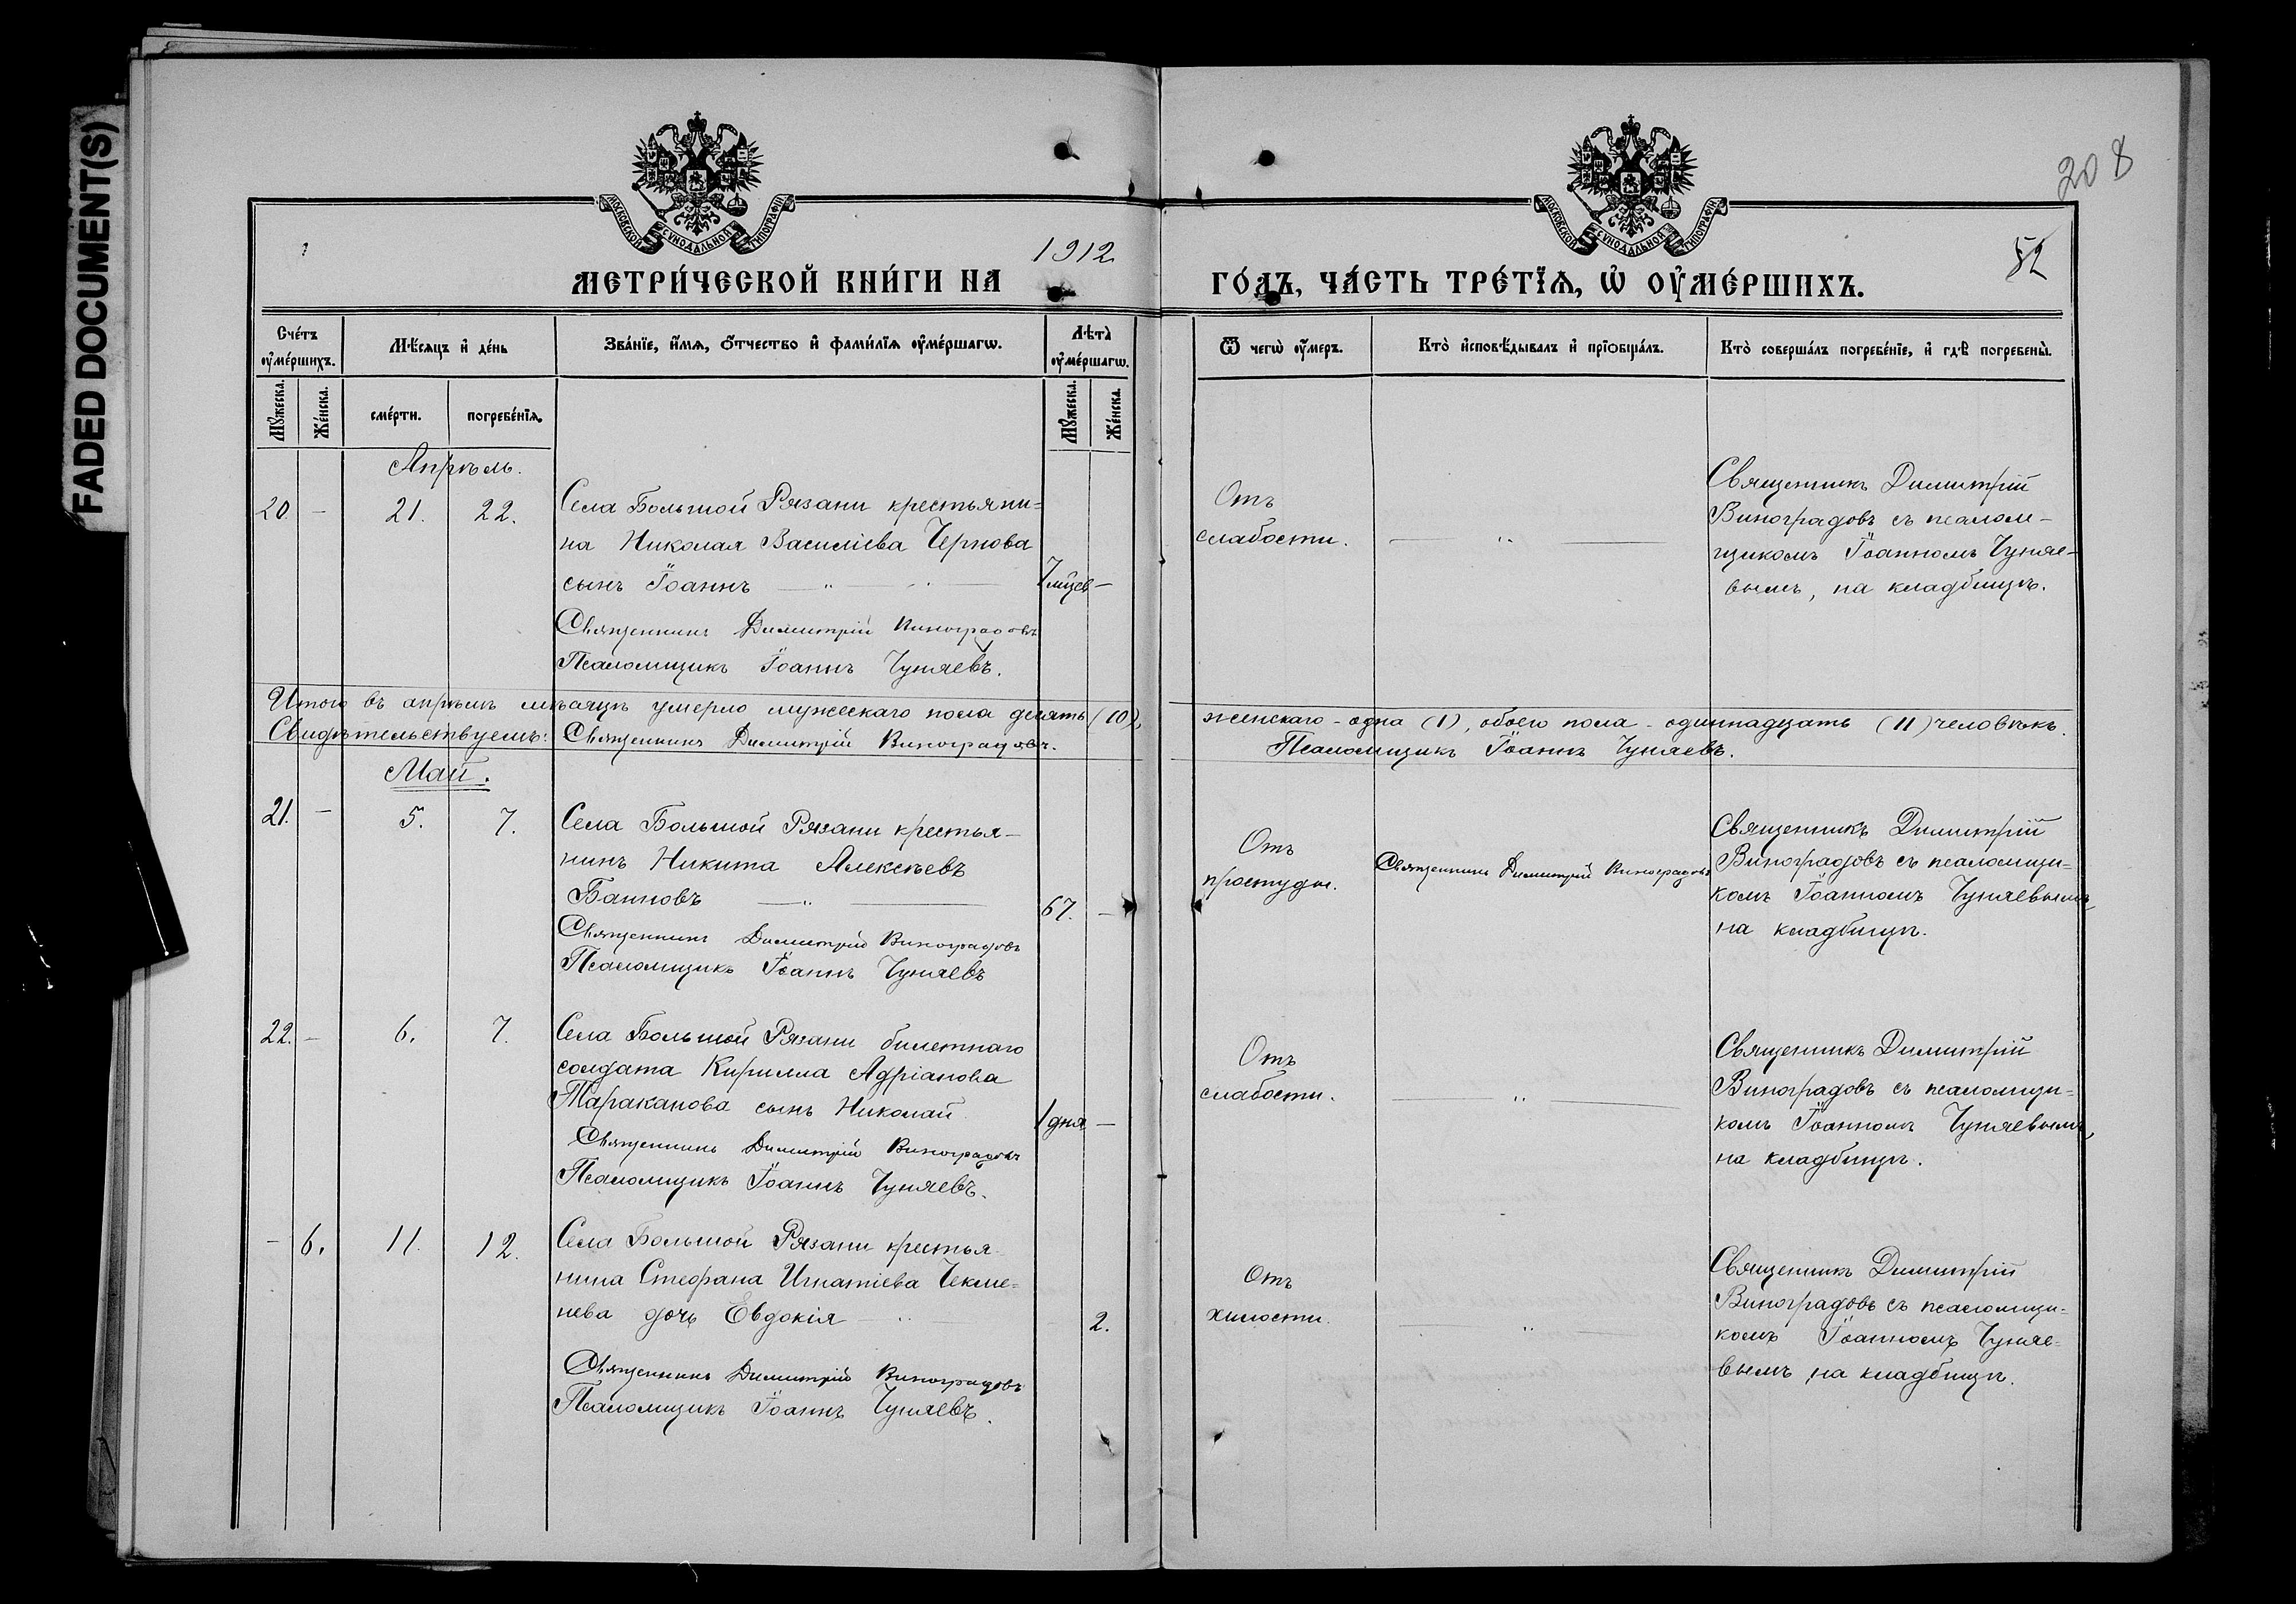 FADED DOCUMENT(S)
208
52
МОСКОВСКОЙ СѴНОДАЛЬНОЙ ТИПОГРАФІИ
МОСКОВСКОЙ СѴНОДАЛЬНОЙ ТИПОГРАФІИ
МЕТРИ́ЧЕСКОЙ КНИ́ГИ НА 1912 ГО́ДЪ, ЧА́СТЬ ТРЕ́ТЇѦ, Ѡ҆ ОУ҆МЕ́РШИХЪ.
Сче́тъ оу҆ме́ршихъ.
Мꙋ́жеска.
Же́нска.
Мѣ́сѧцъ и҆ де́нь
сме́рти.
погребе́нїѧ.
Зва́нїе, и҆́мѧ, ѻ҆́тчество и҆ фами́лїѧ оу҆ме́ршагѡ.
Лѣ́та̀ оу҆ме́ршагѡ.
Мꙋ́жеска.
Же́нска.
Ѿ чегѡ̀ оу҆́меръ.
Кто̀ и҆сповѣ́дывалъ и҆ прїѻбща́лъ.
Кто̀ соверша́лъ погребе́нїе, и҆ гдѣ̀ погребены̀.
Апрѣль.
20 — 21. 22.
Села Большой Рязани крестьяни=
на Николая Василіева Чернова
сынъ Іоаннъ — „ — „ —
7 мѣцев —
Священникъ Димитрій Виноградовъ
Псаломщикъ Іоаннъ Чуняевъ.
Отъ
слабости.
— „ —
Священникъ Димитрій
Виноградовъ съ псалом-
щикомъ Іоанномъ Чуняе-
вымъ, на кладбищѣ.
Итого въ апрѣлѣ мѣсяцѣ умерло мужескаго пола десять (10), женскаго - одна (1), обоего пола - одиннадцать (11) человѣкъ.
Свидѣтельствуемъ: Священникъ Димитрій Виноградовъ. Псаломщикъ Іоаннъ Чуняевъ.
Май.
21. — 5. 7.
Села Большой Рязани крестья-
нинъ Никита Алексѣевъ
Баннов‌ъ — „ —
67. —
Священникъ Димитрій Виноградовъ
Псаломщикъ Іоаннъ Чуняевъ
Отъ
простуды.
Священникъ Димитрій Виноградовъ
Священникъ Димитрій
Виноградовъ съ псаломщи=
комъ Іоанномъ Чуняевымъ,
на кладбищѣ.
22. — 6. 7.
Села Большой Рязани билетнаго
солдата Кирилла Адріанова
Тараканова сынъ Николай
1 дня —
Священникъ Димитрій Виноградовъ
Псаломщикъ Іоаннъ Чуняевъ.
Отъ
слабости.
— „ —
Священникъ Димитрій
Виноградовъ съ псаломщи=
комъ Іоанномъ Чуняевымъ,
на кладбищѣ.
— 6. 11. 12.
Села Большой Рязани крестья-
нина Стефана Игнатіева Чекме=
нева дочь Евдокія — „ —
2.
Священникъ Димитрій Виноградовъ
Псаломщикъ Іоаннъ Чуняевъ.
Отъ
хилости.
— „ —
Священникъ Димитрій
Виноградовъ съ псаломщи=
комъ Іоанномъ Чуняе-
вымъ, на кладбищѣ.